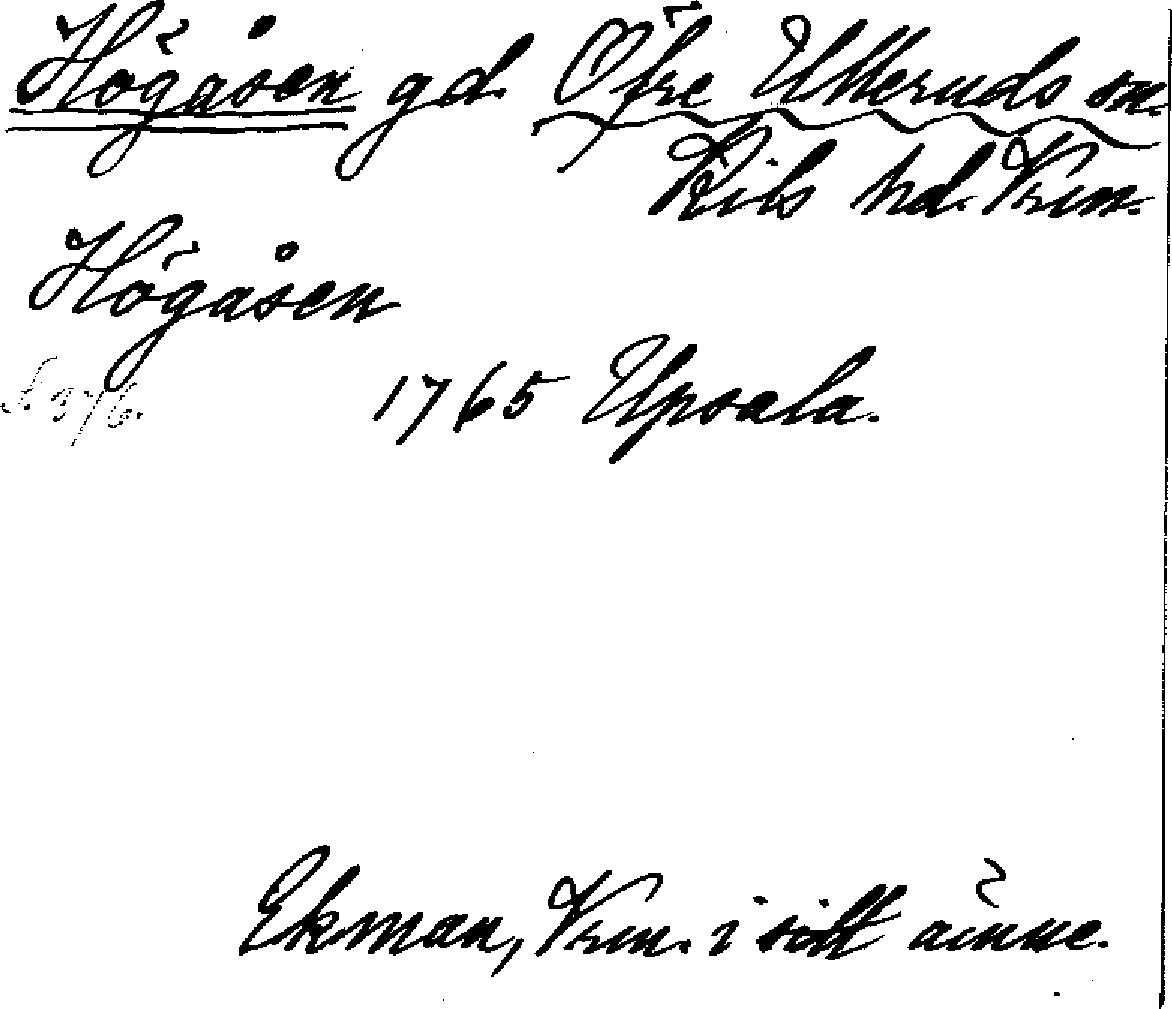 Högåsen gd. Öfre Ulleruds sn.
Kils hd. Vrm.
Högåsen
s. 376. 1765 Upsala.
Ekman, Vrm. i sitt ämne.